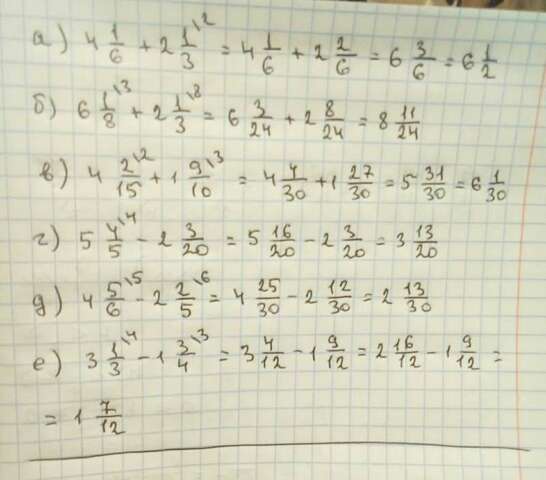 а) 4 1/6 + 2 1/3 \2 = 4 1/6 + 2 2/6 = 6 3/6 = 6 1/2
б) 6 1/8 \3 + 2 1/3 \8 = 6 3/24 + 2 8/24 = 8 11/24
в) 4 2/15 \2 + 1 9/10 \3 = 4 4/30 + 1 27/30 = 5 31/30 = 6 1/30
г) 5 4/5 \4 - 2 3/20 = 5 16/20 - 2 3/20 = 3 13/20
д) 4 5/6 \5 - 2 2/5 \6 = 4 25/30 - 2 12/30 = 2 13/30
е) 3 1/3 \4 - 1 3/4 \3 = 3 4/12 - 1 9/12 = 2 16/12 - 1 9/12 =
= 1 7/12